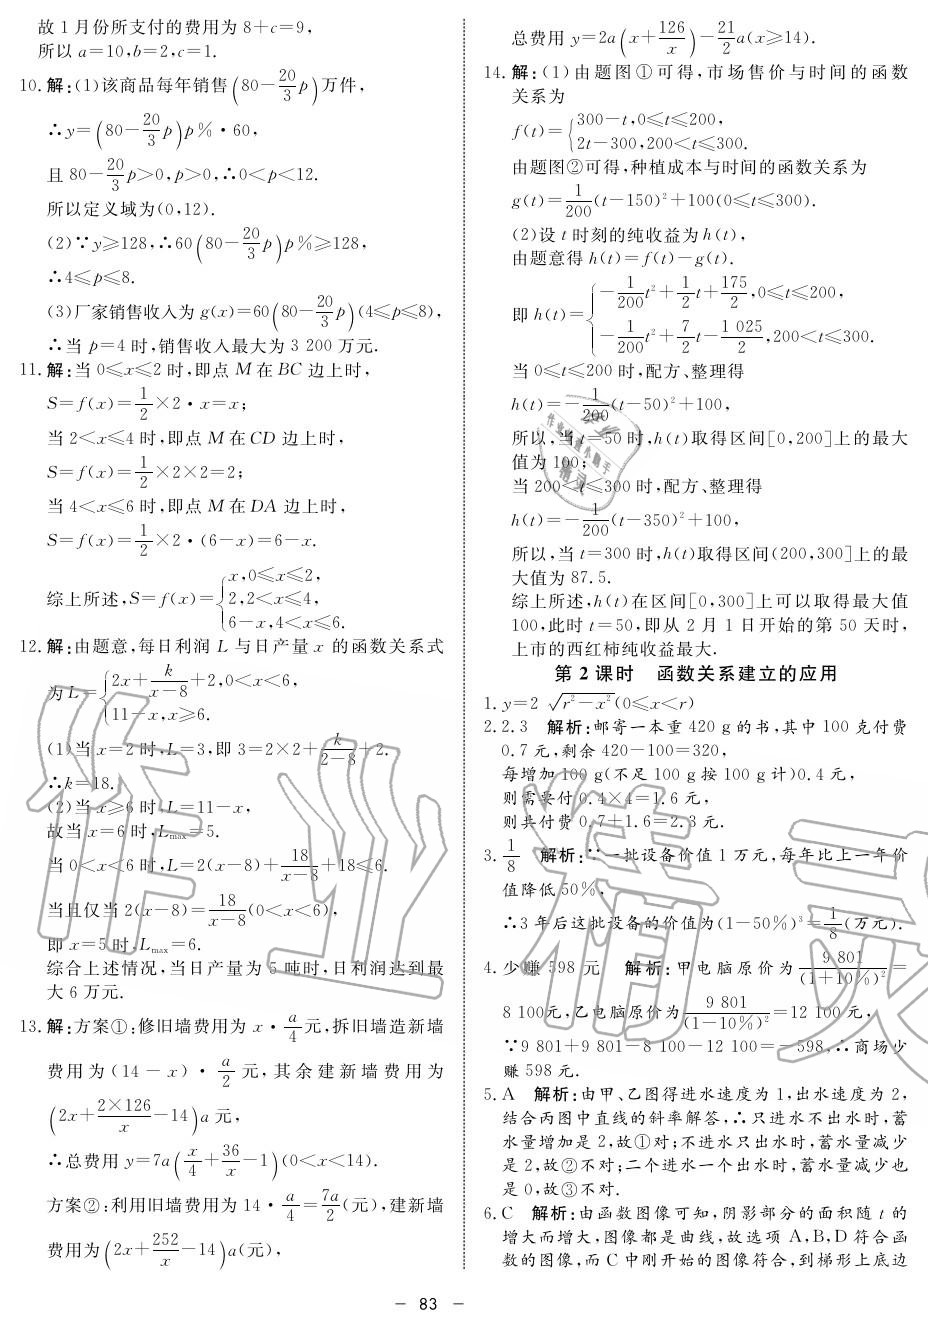 故 1 月份所支付的费用为 8+c=9,
所以 a=10,b=2,c=1.
10. 解:(1)该商品每年销售(80-20/3 p)万件,
∴y=(80-20/3 p)p%·60,
且 80-20/3 p>0,p>0,∴0<p<12.
所以定义域为(0,12).
(2)∵y≥128,∴60(80-20/3 p)p%≥128,
∴4≤p≤8.
(3)厂家销售收入为 g(x)=60(80-20/3 p)(4≤p≤8),
∴当 p=4 时,销售收入最大为 3 200 万元.
11. 解:当 0≤x≤2 时,即点 M 在 BC 边上时,
S=f(x)=1/2×2·x=x;
当 2<x≤4 时,即点 M 在 CD 边上时,
S=f(x)=1/2×2×2=2;
当 4<x≤6 时,即点 M 在 DA 边上时,
S=f(x)=1/2×2·(6-x)=6-x.
综上所述,S=f(x)={x,0≤x≤2,
2,2<x≤4,
6-x,4<x≤6.
12. 解:由题意,每日利润 L 与日产量 x 的函数关系式
为 L={2x+k/(x-8)+2,0<x<6,
11-x,x≥6.
(1)当 x=2 时,L=3,即 3=2×2+k/(2-8)+2.
∴k=18.
(2)当 x≥6 时,L=11-x,
故当 x=6 时,Lmax=5.
当 0<x<6 时,L=2(x-8)+18/(x-8)+18≤6.
当且仅当 2(x-8)=18/(x-8)(0<x<6),
即 x=5 时,Lmax=6.
综合上述情况,当日产量为 5 吨时,日利润达到最
大 6 万元.
13. 解:方案①:修旧墙费用为 x·a/4元,拆旧墙造新墙
费用为(14-x)·a/2元,其余建新墙费用为
(2x+(2×126)/x-14)a 元,
∴总费用 y=7a(x/4+36/x-1)(0<x<14).
方案②:利用旧墙费用为 14·a/4=7a/2(元),建新墙
费用为(2x+252/x-14)a(元),
总费用 y=2a(x+126/x)-21/2 a(x≥14).
14. 解:(1)由题图①可得,市场售价与时间的函数
关系为
f(t)={300-t,0≤t≤200,
2t-300,200<t≤300.
由题图②可得,种植成本与时间的函数关系为
g(t)=1/200(t-150)²+100(0≤t≤300).
(2)设 t 时刻的纯收益为 h(t),
由题意得 h(t)=f(t)-g(t).
即 h(t)={-1/200 t²+1/2 t+175/2,0≤t≤200,
-1/200 t²+7/2 t-1 025/2,200<t≤300.
当 0≤t≤200 时,配方、整理得
h(t)=-1/200(t-50)²+100,
所以,当 t=50 时,h(t)取得区间[0,200]上的最大
值为 100;
当 200<t≤300 时,配方、整理得
h(t)=-1/200(t-350)²+100,
所以,当 t=300 时,h(t)取得区间(200,300]上的最
大值为 87.5.
综上所述,h(t)在区间[0,300]上可以取得最大值
100,此时 t=50,即从 2 月 1 日开始的第 50 天时,
上市的西红柿纯收益最大.
第 2 课时 函数关系建立的应用
1. y=2√(r²-x²)(0≤x<r)
2. 2.3 解析:邮寄一本重 420 g 的书,其中 100 克付费
0.7 元,剩余 420-100=320,
每增加 100 g(不足 100 g 按 100 g 计)0.4 元,
则需要付 0.4×4=1.6 元,
则共付费 0.7+1.6=2.3 元.
3. 1/8 解析:∵一批设备价值 1 万元,每年比上一年价
值降低 50%,
∴3 年后这批设备的价值为(1-50%)³=1/8(万元).
4. 少赚 598 元 解析:甲电脑原价为9 801/(1+10%)²=
8 100元,乙电脑原价为9 801/(1-10%)²=12 100 元,
∵9 801+9 801-8 100-12 100=-598,∴商场少
赚 598 元.
5. A 解析:由甲、乙图得进水速度为 1,出水速度为 2,
结合丙图中直线的斜率解答,∴只进水不出水时,蓄
水量增加是 2,故①对;不进水只出水时,蓄水量减少
是 2,故②不对;二个进水一个出水时,蓄水量减少也
是 0,故③不对.
6. C 解析:由函数图像可知,阴影部分的面积随 t 的
增大而增大,图像都是曲线,故选项 A,B,D 符合函
数的图像,而 C 中刚开始的图像符合,到梯形上底边
作业精灵
作业检查小助手
精灵
- 83 -